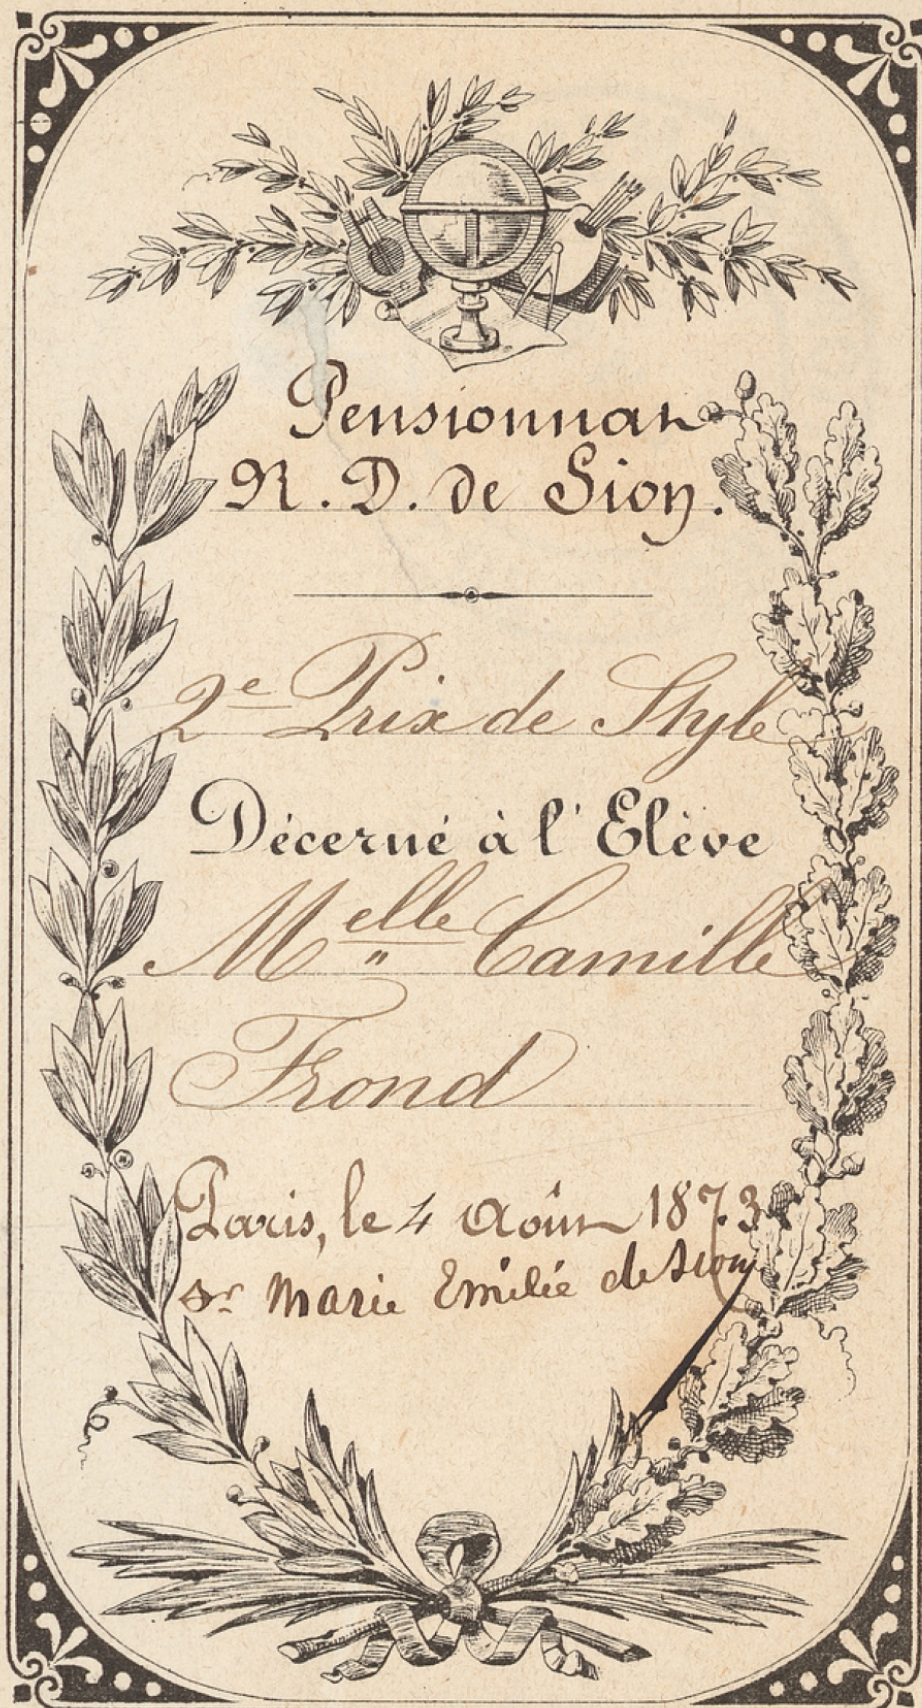 Pensionnat
N. D. de Sion.
2e Prix de Style
Décerné à l'Elève
Melle Camille
Frond
Paris, le 4 Août 1873
Sr Marie Emilie de Sion